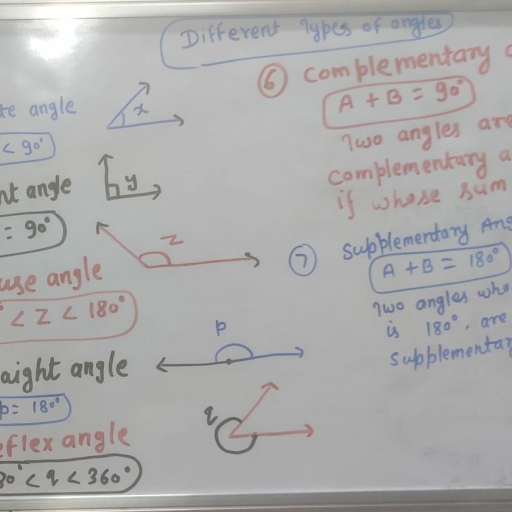 Different Types of angles
te angle
x
< 90°
nt angle
y
= 90°
use angle
z
< Z < 180°
aight angle
P
p = 180°
eflex angle
q
80° < q < 360°
⑥ Complementary a
A + B = 90°
Two angles are
complementary a
if whose sum
⑦ Supplementary Ang
A + B = 180°
Two angles who
is 180°. are
supplementary